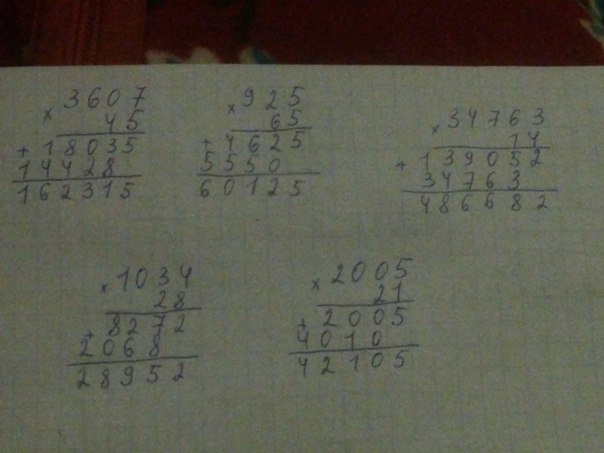 × 3607
45
+ 18035
14428
162315
× 925
65
+ 4625
5550
60125
× 34763
14
+ 139052
34763
486682
× 1034
28
+ 8272
2068
28952
× 2005
21
+ 2005
4010
42105